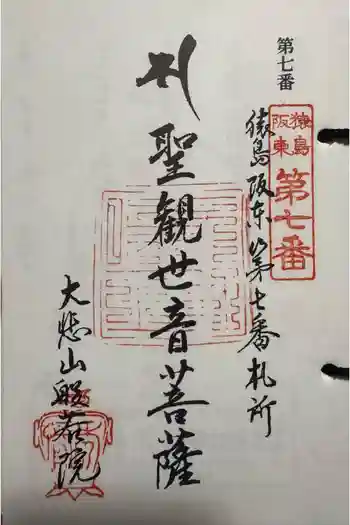 第七番
猿島
阪東
第七番
猿島阪东第七番札所
聖観世音菩薩
大悲山般若院